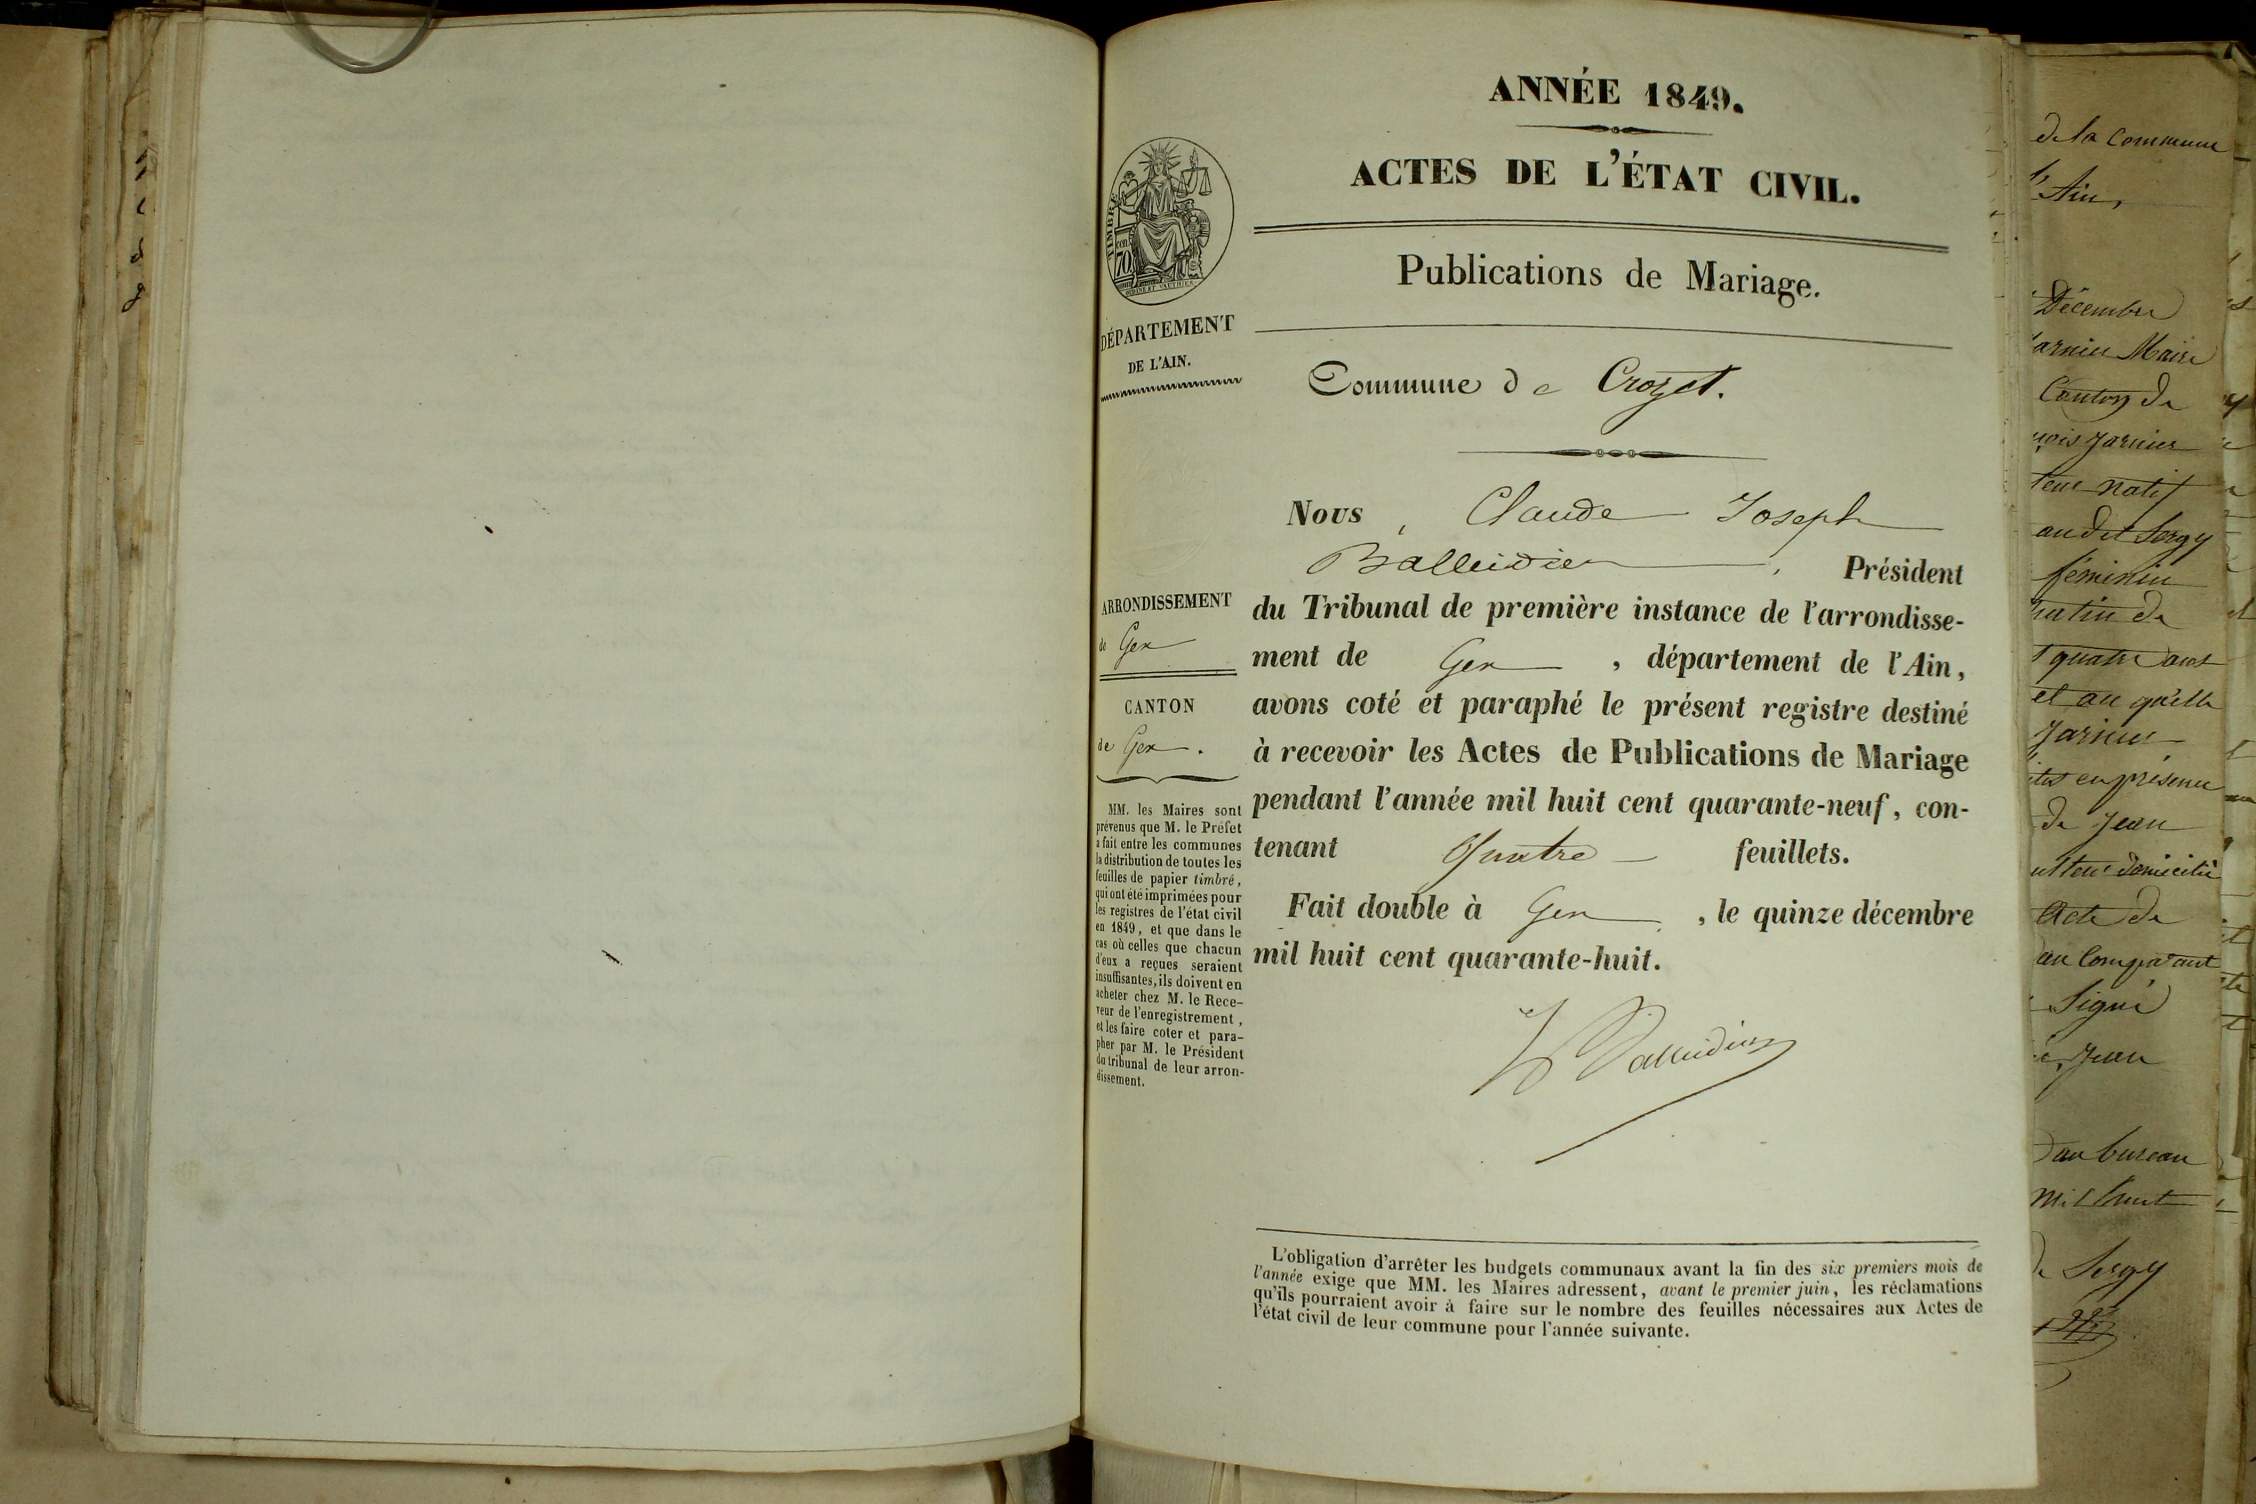 ANNÉE 1849.
ACTES DE L'ÉTAT CIVIL.
Publications de Mariage.
TIMBRE
70
DÉPARTEMENT
DE L'AIN.
Commune de Crozet.
Nous, Claude Joseph
Balleidier, Président
du Tribunal de première instance de l'arrondisse-
ment de Gex, département de l'Ain,
avons coté et paraphé le présent registre destiné
à recevoir les Actes de Publications de Mariage
pendant l'année mil huit cent quarante-neuf, con-
tenant Quatre feuillets.
Fait double à Gex, le quinze décembre
mil huit cent quarante-huit.
Balleidier
ARRONDISSEMENT
de Gex
CANTON
de Gex.
MM. les Maires sont
prévenus que M. le Préfet
a fait entre les communes
la distribution de toutes les
feuilles de papier timbré,
qui ont été imprimées pour
les registres de l'état civil
en 1849, et que dans le
cas où celles que chacun
d'eux a reçues seraient
insuffisantes, ils doivent en
acheter chez M. le Rece-
veur de l'enregistrement,
et les faire coter et para-
pher par M. le Président
du tribunal de leur arron-
dissement.
L'obligation d'arrêter les budgets communaux avant la fin des six premiers mois de
l'année exige que MM. les Maires adressent, avant le premier juin, les réclamations
qu'ils pourraient avoir à faire sur le nombre des feuilles nécessaires aux Actes de
l'état civil de leur commune pour l'année suivante.
de la commune
Ain,
Décembre
Maire
Canton de
Jarnier
natif
audit Sergy
féminin
matin de
quatre ans
et au qu'elle
Jarnier
en présence
de Jean
domicilié
Acte de
au Comparant
Signé
Jean
au bureau
mil huit
de Sergy